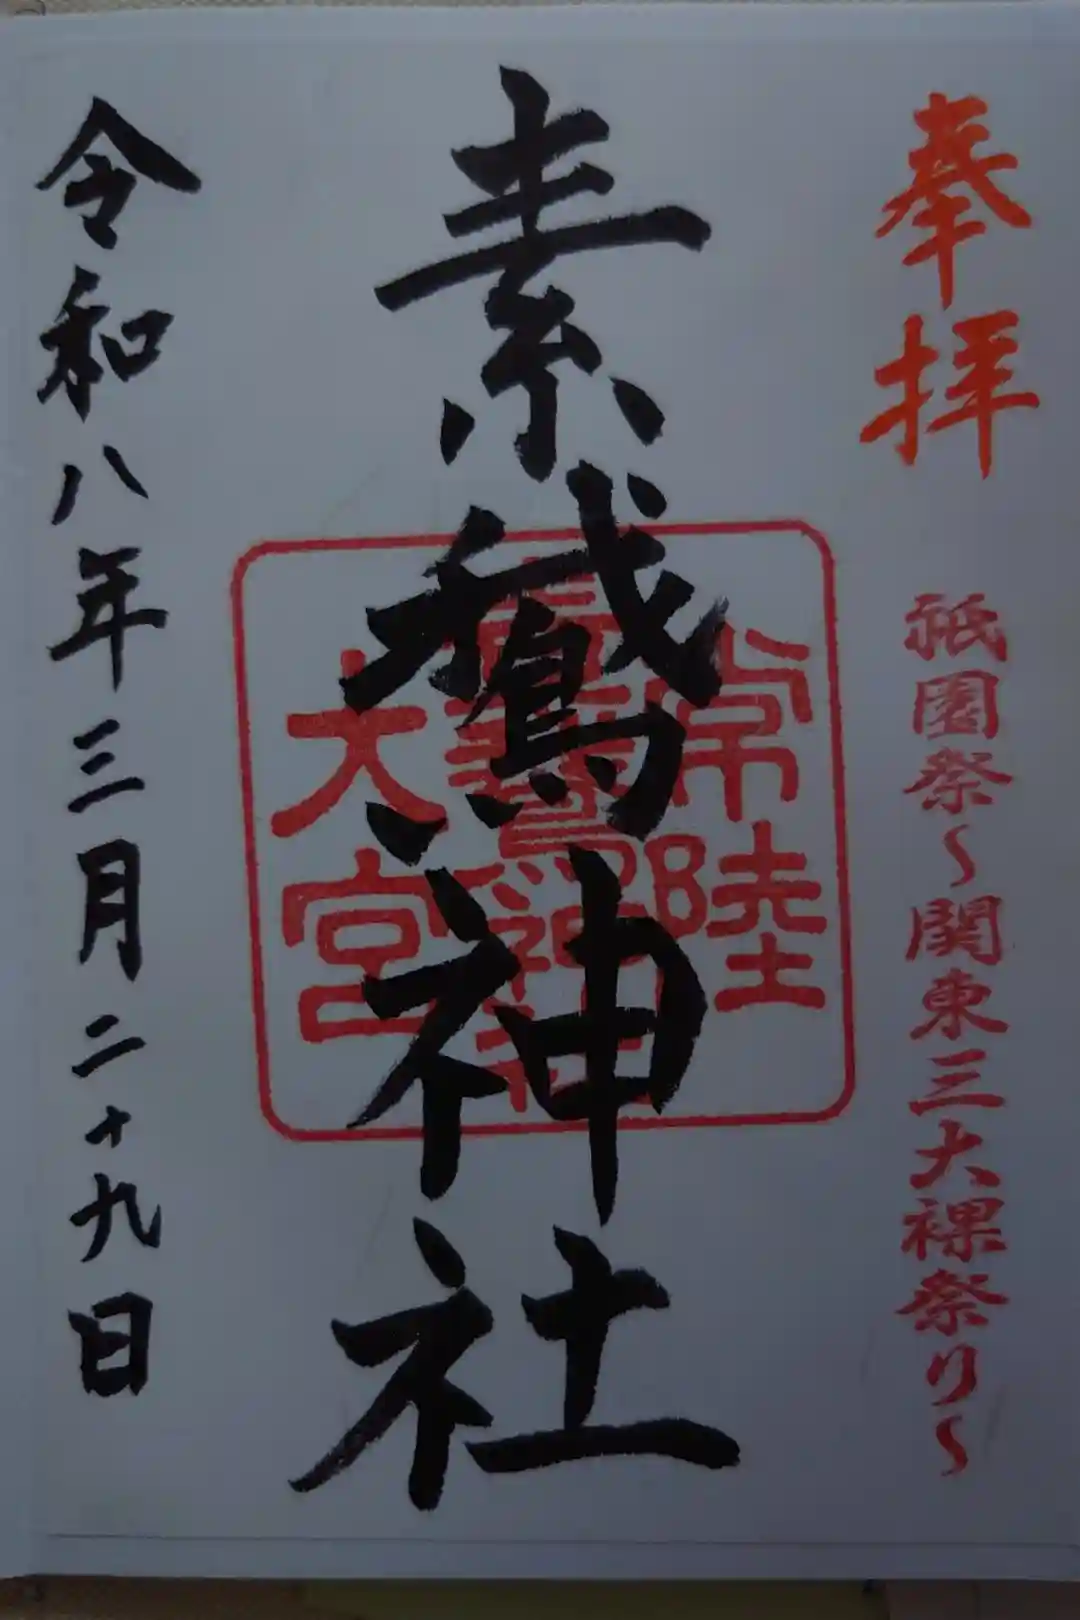 奉拝
祇園祭～関東三大裸祭り～
素鵞神社
常陸
素鵞神社
大宮
令和八年三月二十九日